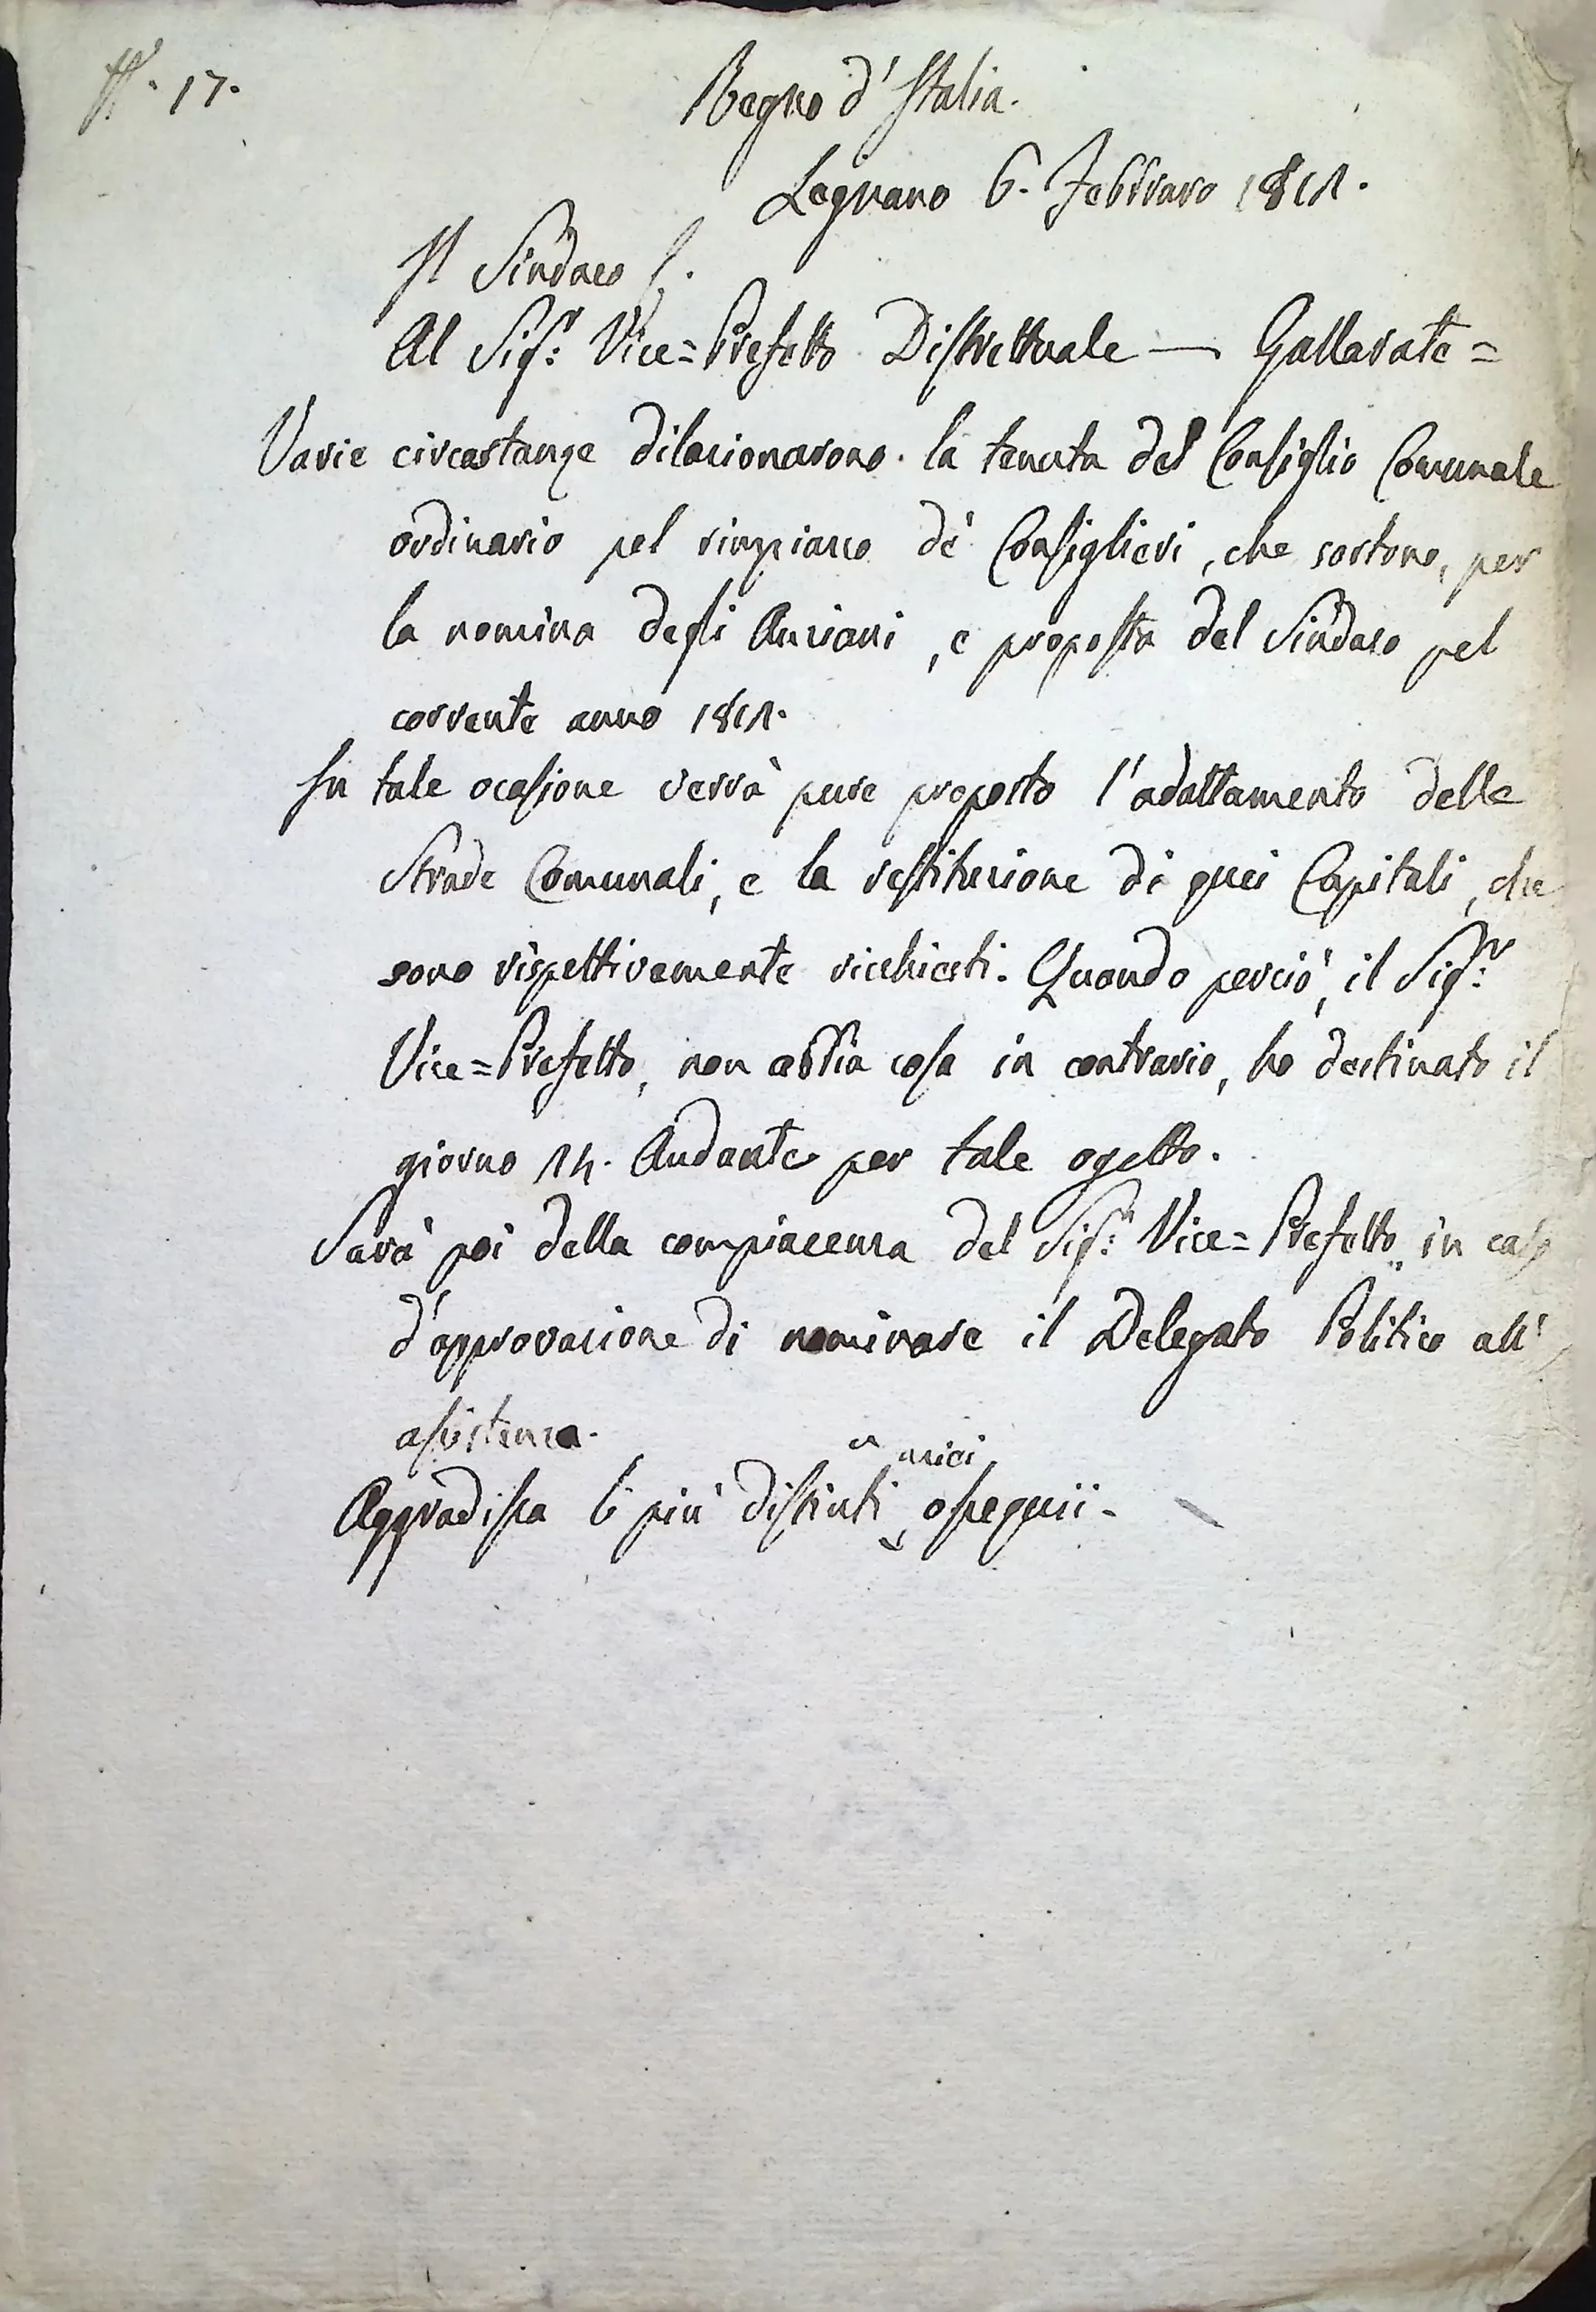 N.° 17.
Regno d'Italia.
Legnano 6. Febbraro 1811.
Il Sindaco
Al Sig.r Vice=Prefetto Distrettuale — Gallarate=
Varie circostanze dilazionarono la tenuta del Consiglio Comunale
ordinario pel rimpiazzo de' Consiglieri, che sortono, per
la nomina degli Anziani, e proposta del Sindaco pel
corrente anno 1811.
In tale ocasione verrà pure proposto l'adattamento delle
Strade Comunali, e la restituzione di quei Capitali, che
sono rispettivemente richiesti. Quando perciò, il Sig.r
Vice=Prefetto, non abbia cosa in contrario, ho destinato il
giorno 14. Andante per tale ogetto.
Sarà poi della compiacenza del Sig.r Vice=Prefetto, in caso
d'approvazione di nominare il Delegato Politico all'
assistenza.
Aggradisca li più distinti ossequii.